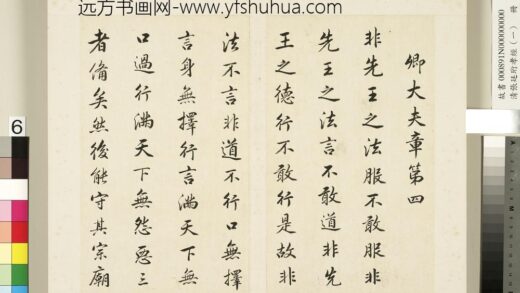 远方书画网-www.yfshuhua.com
卿大夫章第四
非先王之法服不敢服非
先王之法言不敢道非先
王之德行不敢行是故非
法不言非道不行口無擇
言身無擇行言滿天下無
口過行滿天下無怨惡三
者備矣然後能守其宗廟
故書 000891N000000000
清張廷玠孝經（一） 冊
6